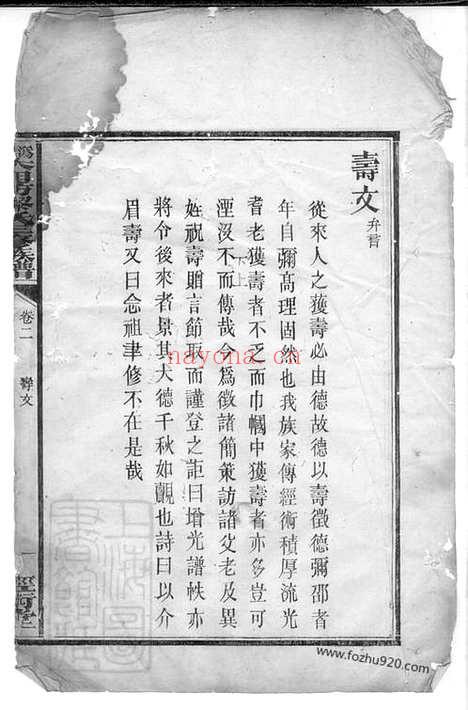 壽文弁言
從來人之獲壽必由德故德以壽徵德彌邵者
年自彌高理固然也我族家傳經術積厚流光
耆老獲壽者不乏而巾幗中獲壽者亦多豈可
湮沒不而傳哉今爲徵諸簡策訪諸父老及異
下上
姓祝壽贈言節取而謹登之詎曰增光譜帙亦
將令後來者景其大德千秋如覿也詩曰以介
眉壽又曰念祖聿修不在是哉
族譜
卷二
聯文
一
nayona.cn
上海圖書館藏
www.fozhu920.com